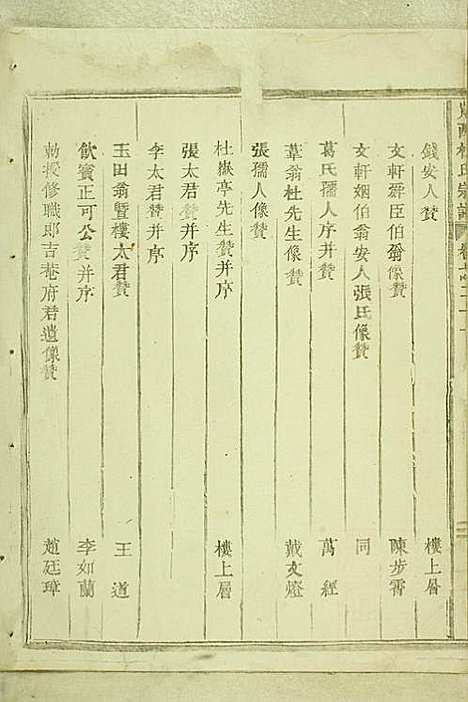 錢安人贊 樓上層
文軒舜臣伯翁像贊 陳步霄
文軒姻伯翁安人張氏像贊 同
葛氏孺人序并贊 萬經
葦翁杜先生像贊 戴文燈
張孺人像贊
杜嶽亭先生贊并序 樓上層
張太君贊并序
李太君贊并序
玉田翁暨樓太君贊 王道
飲賓正可公贊并序 李如蘭
勅授修職郎吉菴府君遺像贊 趙廷璋